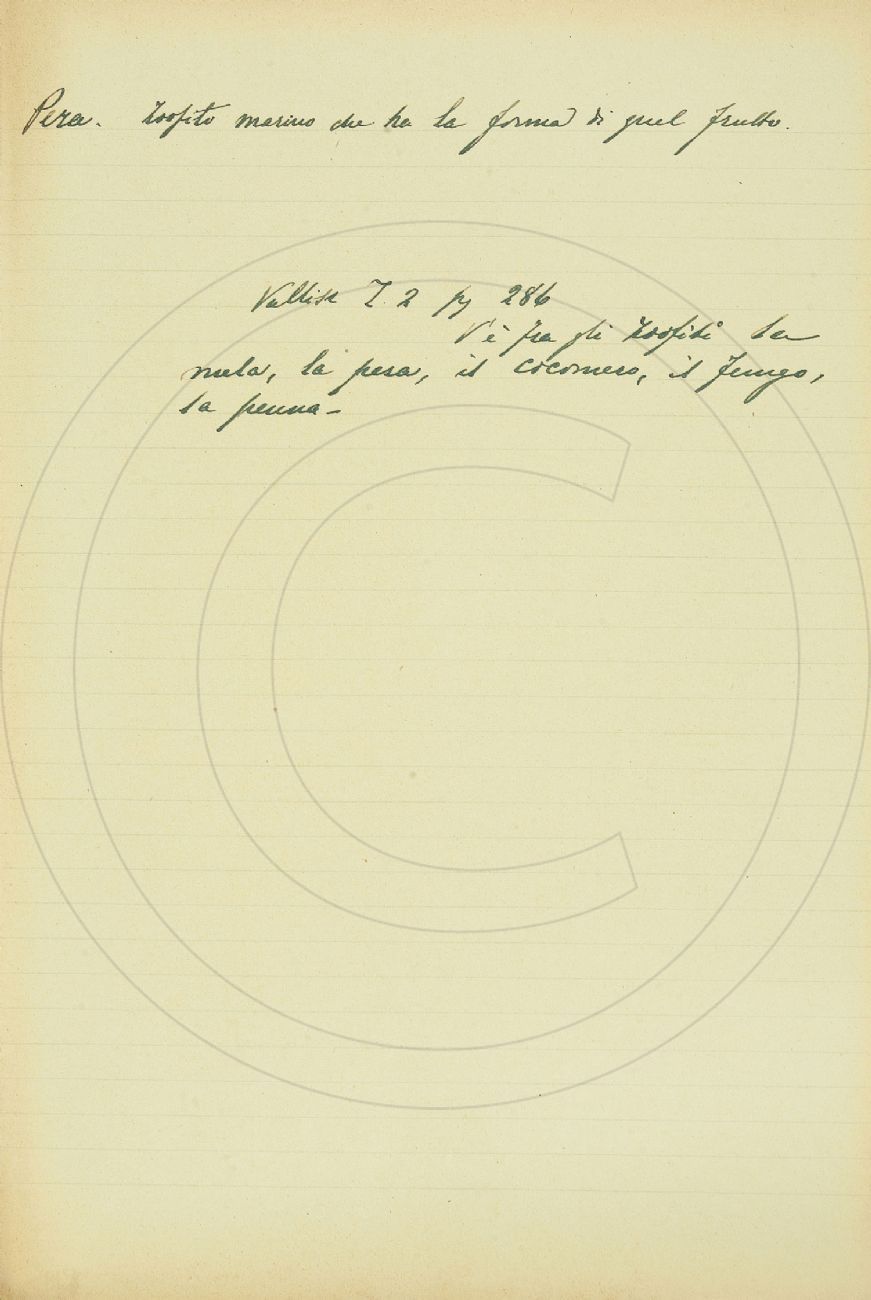 Pera. Zoofito marino che ha la forma di quel frutto.
Vallisn T. 2 pg 286
V'è fra gli zoofiti la
mela, la pera, il cocomero, il fungo,
la penna -